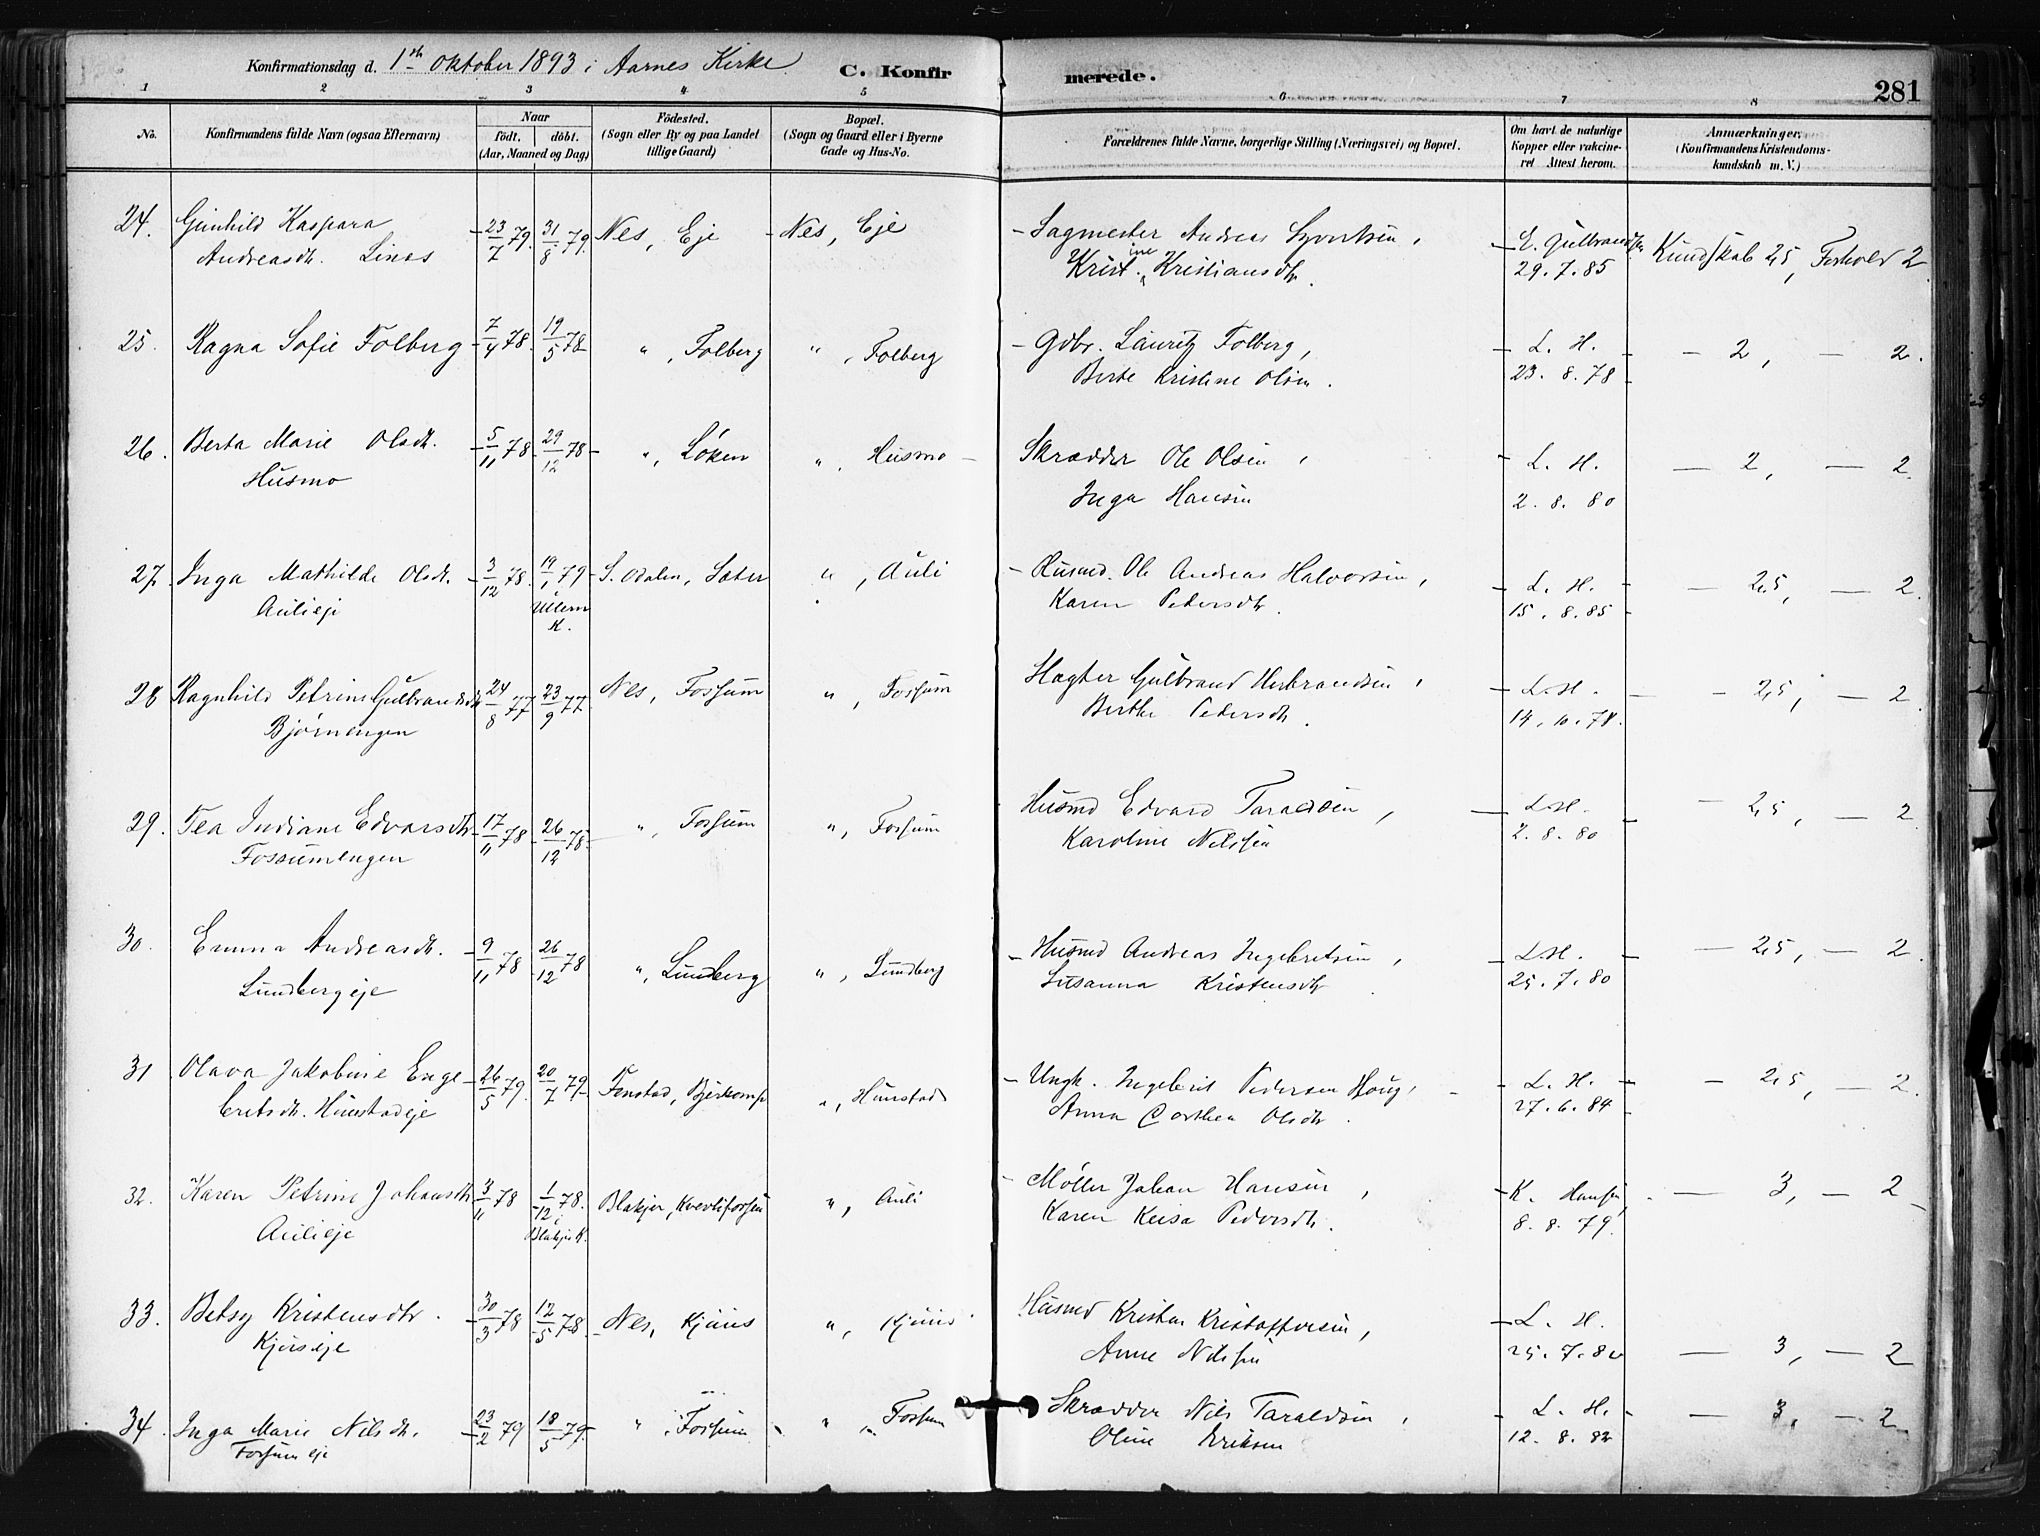 Konfirmationsdag d. 1ste Oktober 1893 i Aarnes Kirke C. Konfirmerede. 281
1 2 3 4 5 6 7 8
No. Konfirmandens fulde Navn (ogsaa Efternavn) Naar födt. döbt. (Aar, Maaned og Dag) Födested. (Sogn eller By og paa Landet tillige Gaard) Bopæl. (Sogn og Gaard eller i Byerne Gade og Hus-No. Forældrenes fulde Navne, borgerlige Stilling (Næringsvei) og Bopæl. Om havt de naturlige Kopper eller vakcineret Attest herom. Anmærkninger. (Konfirmandens Kristendomskundskab m. V.)
24. Gunhild Kaspara 23/7 79. 31/8 79. Nes, Eje Nes, Eje Sagmester Andreas E. Gulbrandsen Kundskab 2,5, Forhold 2
Andreasdt. Kristine Kristiansdtr. 29.7.85
25. Ragna Sofie Folberg 7/4 78. 19/5 78 ", Folberg ", Folberg Gdbr. Lauritz Folberg, L. H. — 2, — 2.
Berte Kristine Olsen. 23. 8. 78
26. Berta Marie Olsdt. 5/11 78. 29/12 78 ", Løken ", Husmo Skrædder Ole Olsen, L. H. — 2, — 2.
Husmo Inga Hansen 2. 8. 80
27. Inga Mathilde Olsdt. 3/12 78. 19/1 79 S. Odalen, Sæter ", Auli Husmd. Ole Andreas Halvorsen, L. H. — 2,5, — 2.
Aulieje Ullern K. Karen Pedersdtr. 15. 8. 85
28 Ragnhild Petrine Gulbrandsdt 24/8 77 23/9 77 Nes, Fossum ", Fossum Gulbrand Herbrandsen, L. H. — 2,5, — 2.
Bjørnengen Berthe Pedersdt. 14. 10. 78.
29. Tea Indiane Edvarsdtr 17/11 78. 26/12 78. ", Fossum ", Fossum Husmd Edvard Taraldsen, L. H. — 2,5, — 2
Fossumengen Karoline Nilssen 2. 8. 80
30. Emma Andreasdt. 9/11 78 26/12 78 ", Lundberg ", Lundberg Husmd Andreas Ingebretsen, L. H. — 2,5, — 2.
Lundbergeje Susanna Kristensdtr 25. 7. 80
31 Olava Jakobine Enge- 26/5 79. 20/7 79 Fenstad, ", Hunstad Ungk. Ingebrit Pedersen Houg, L. H. — 2,5, — 2.
bretsdt. Hunstadeje Anna Dorthea Olsdtr. 27. 6. 84
32. Karen Petrine Johansdtr 3/11 78 1/12 78. Blakjer, ", Auli Møller Johan Hansen, K. Hansen, — 3, — 2
Aulieje Blakjer K. Karen Pedersdtr. 8. 8. 79.
33. Betsy Kristensdtr. 30/3 78 12/5 78. Nes, Kjuus ", Kjuus Husmd Kristen Kristoffersen, L. H. — 3, — 2
Kjuseje Anne Nilssen 25. 7. 80
34. Inga Marie Nilsdt. 23/2 79 18/5 79. ", Fossum ", Fossum Skrædder Nils Taraldsen, L. H. — 3, — 2
Fossumeje Oline Eriksen 12. 8. 82